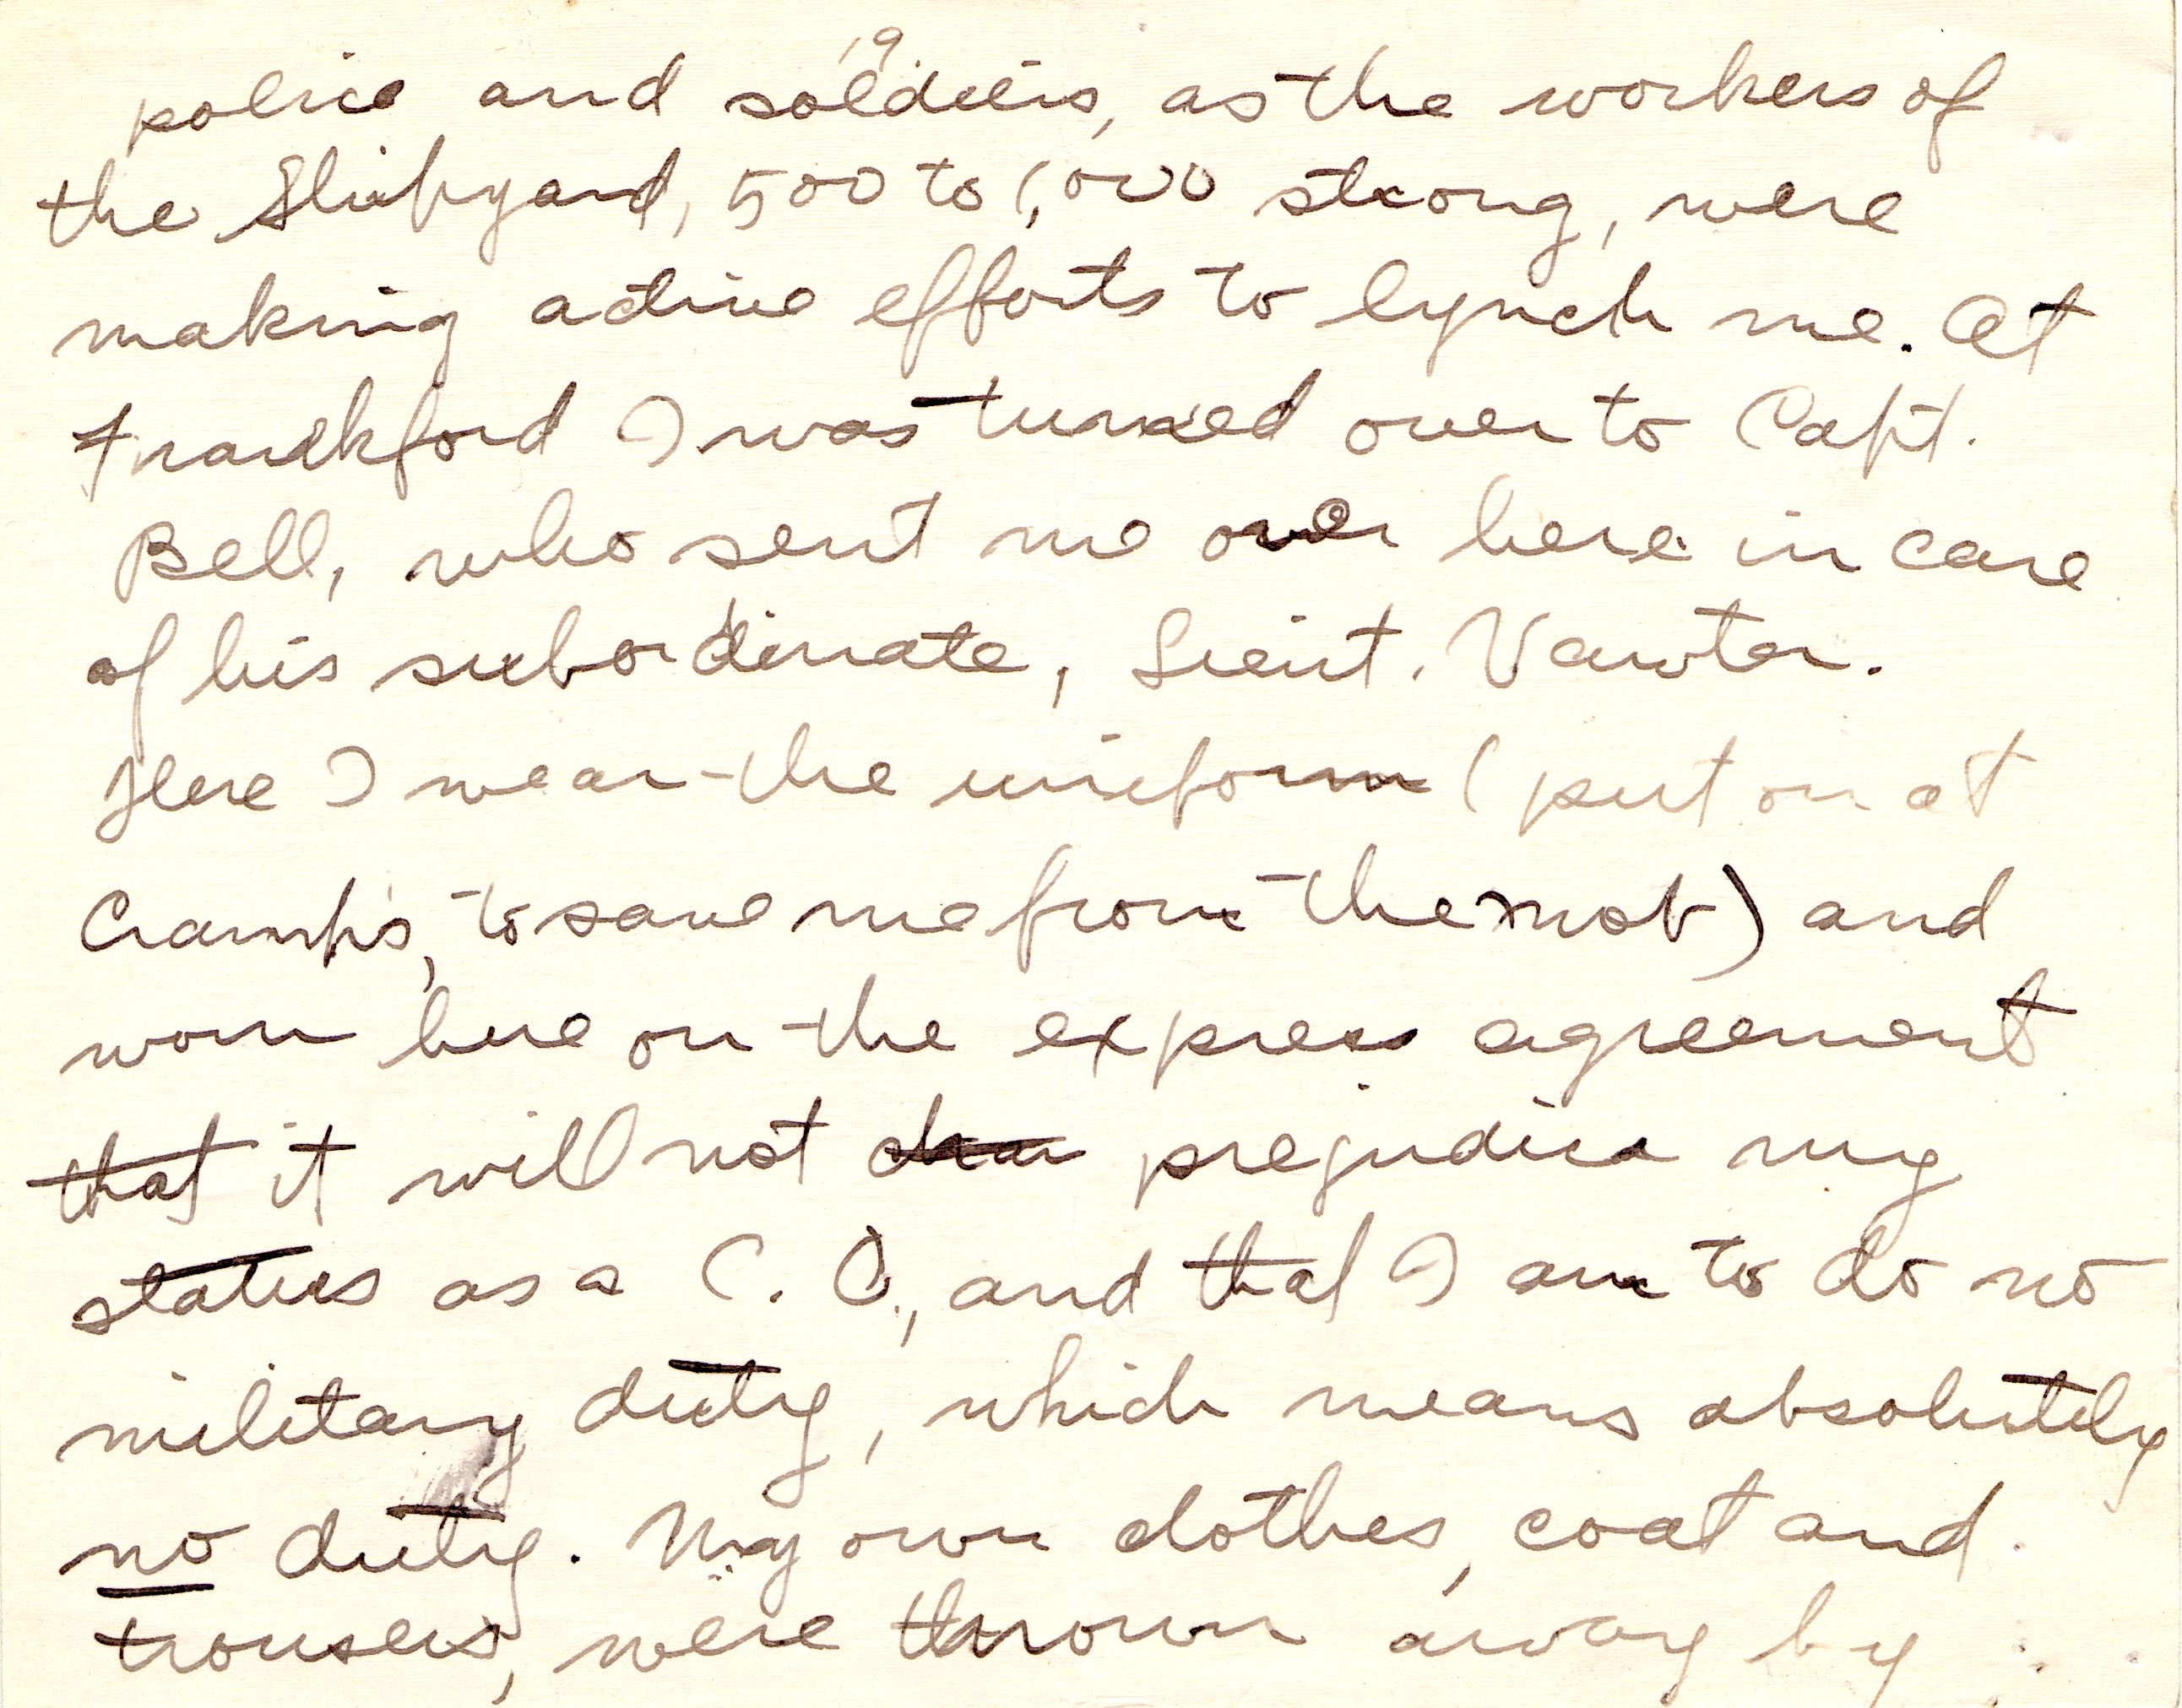 19
police and soldiers, as the workers of
the Shipyard, 500 to 1,000 strong, were
making active efforts to lynch me. At
Frankford I was turned over to Capt.
Bell, who sent me over here in care
of his subordinate, Lieut. Vawter.
Here I wear the uniform (put on at
Cramp's, to save me from the mob) and
worn here on the express agreement
that it will not prejudice my
status as a C. O., and that I am to do no
military duty, which means absolutely
no duty. My own clothes, coat and
trousers, were thrown away by